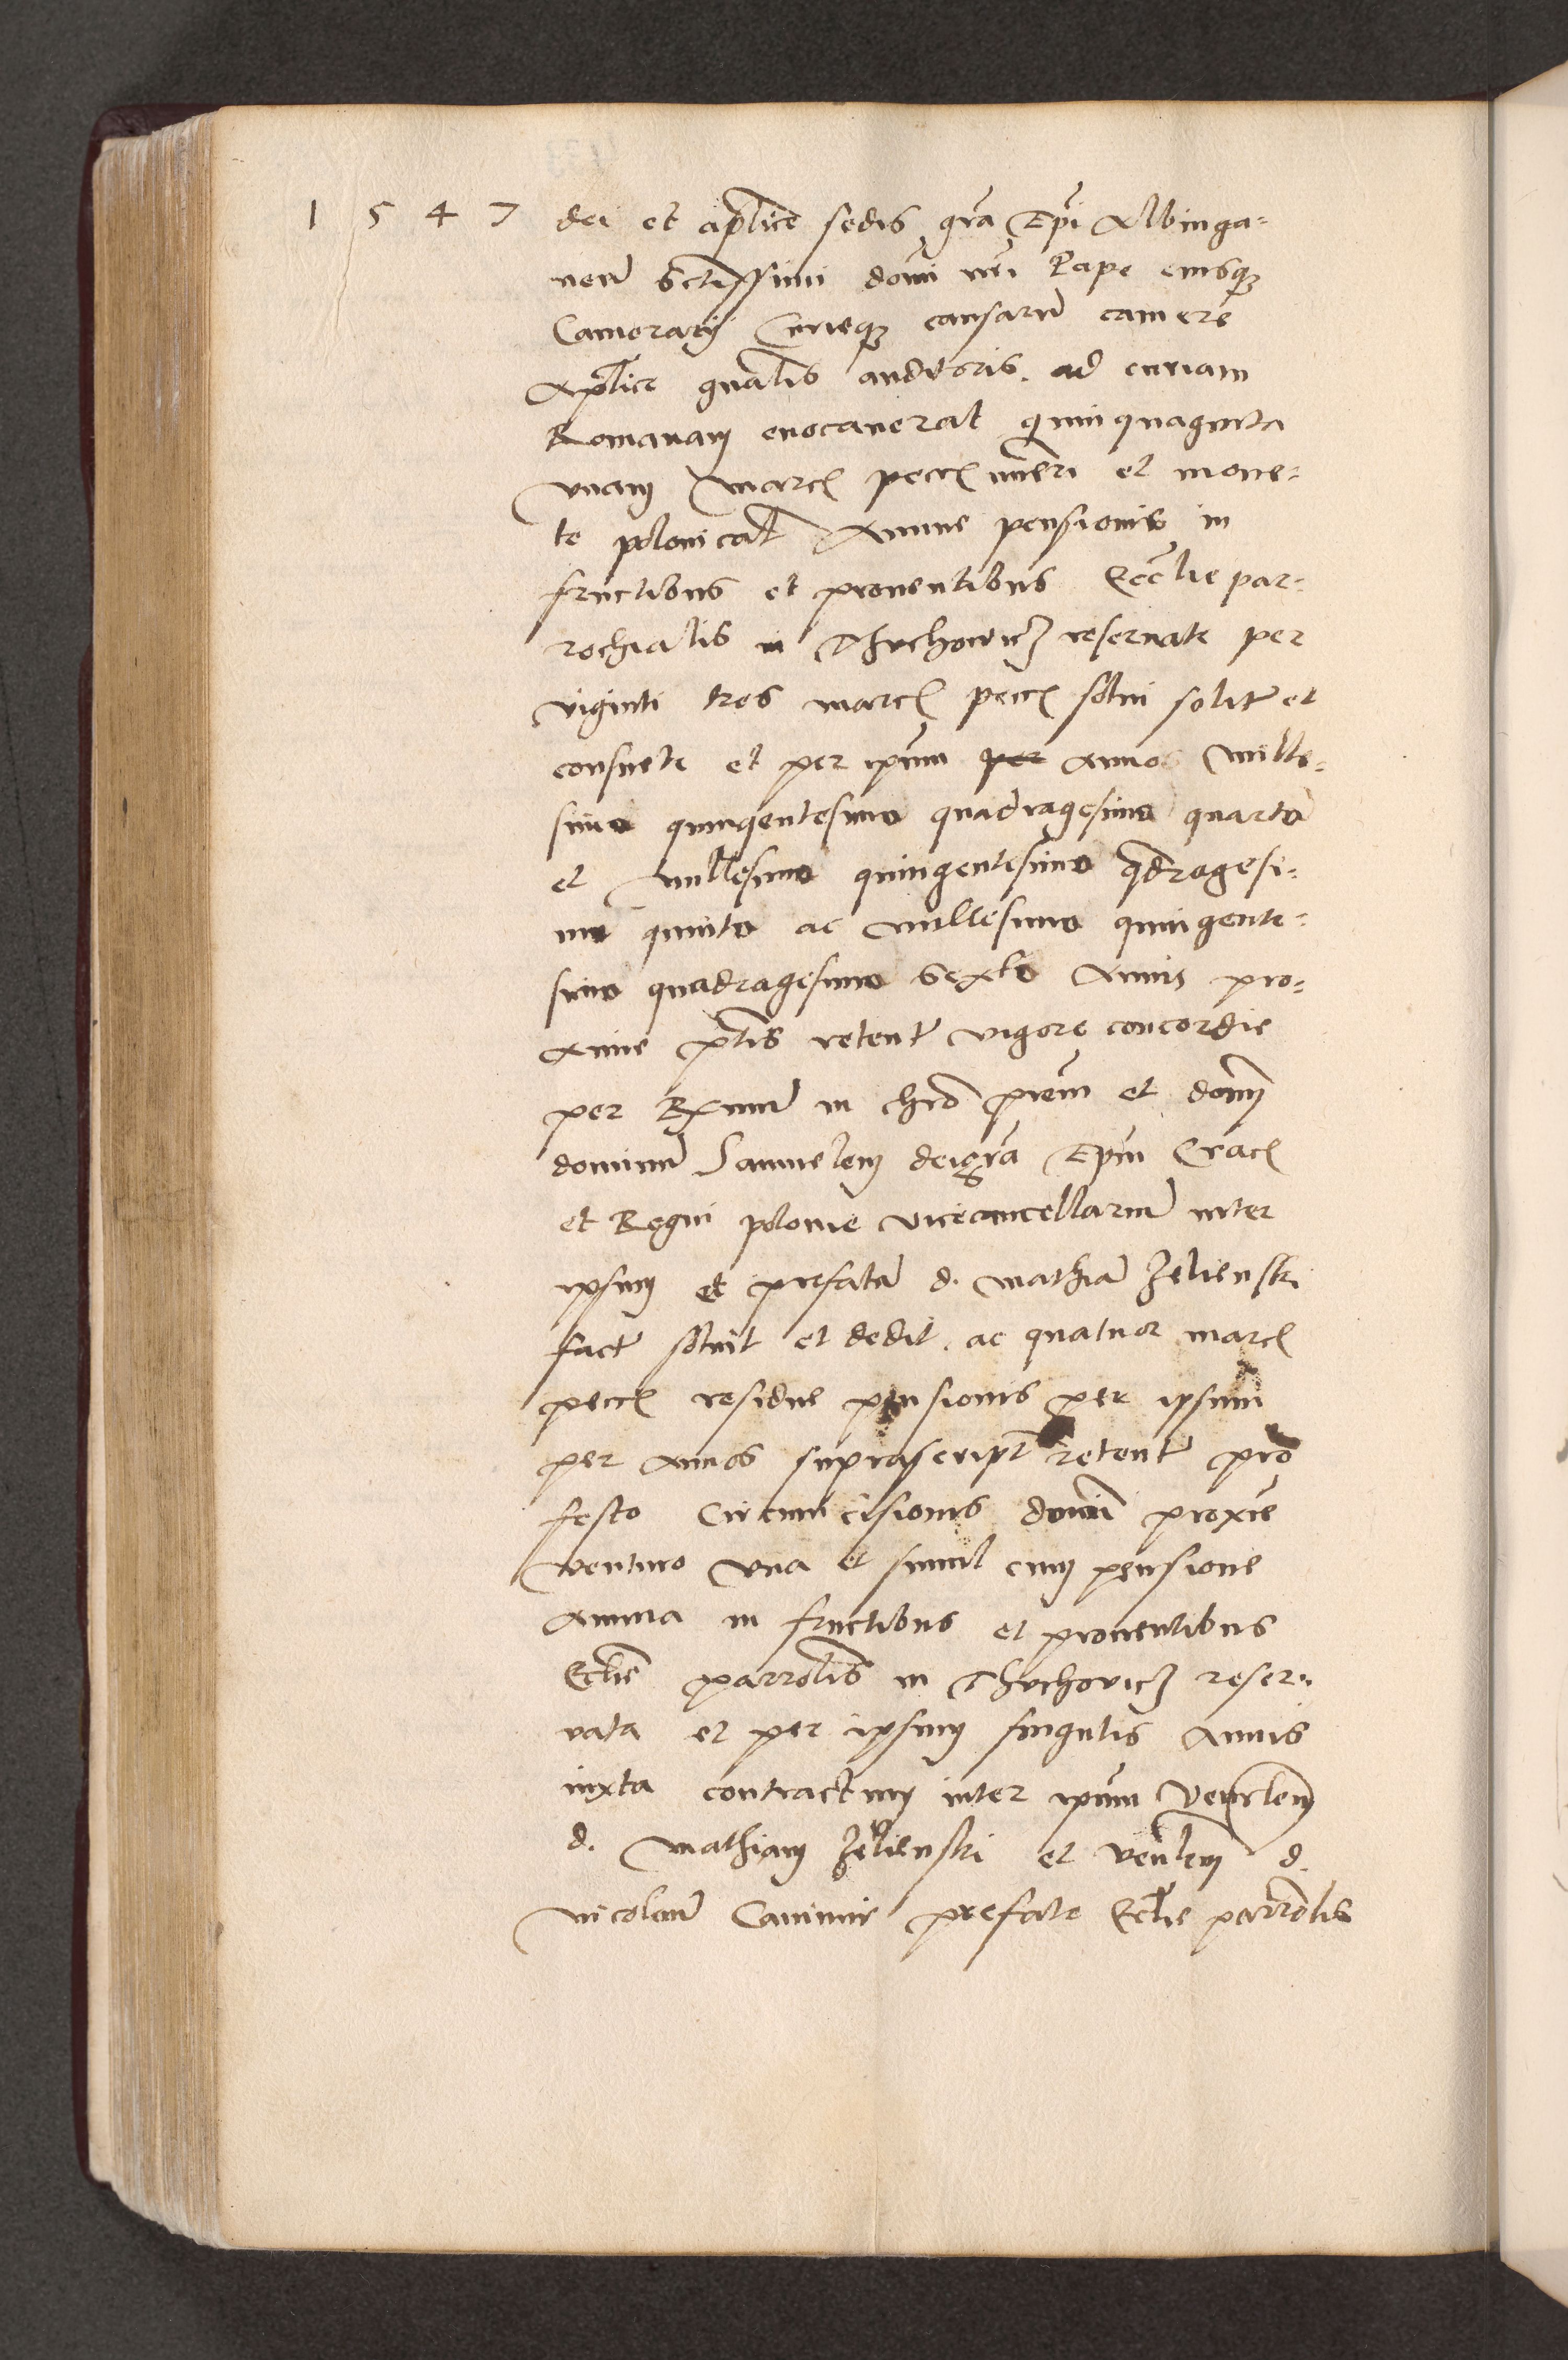 1 5 4 7 dei et aplice sedis gra Epi Albinga=
nen sctissimi domi nri Pape eiusq
Camerarij Curieq causaru camere
Aplice gnalis auditoris. ad curiam
Romanam euocauerat quinquaginta
vnam marc pecc numeri et mone=
te polonical Annue pensionis in
fructibus et prouentibus Ecclie par=
rochialis in Thuchowicz reseruate per
viginti tres marc pecc solui solit et
consuete et per ipsum per Annos mille=
simo quingentesimo quadragesimo quarto
et millesimo quingentesimo qdragesi=
mo quinto ac millesimo quingente=
simo quadragesimo sexto Annis pro=
xime ptis retent vigore concordie
per Rxmum in chro prem et domi
dominum Samuelem dei gra Epm Crac
et Regni polonie vicecancellarium inter
ipsum et prefatum d. mathiam Zelienski
fact soluit et dedit. ac quatuor marc
pecc residue pensionis per ipsum
per Annos suprascript retent pro
festo Circumcisionis domi proxie
venturo vna et simul cum pensione
Annua in fructibus et prouentibus
Eclie parrolis in Thuchouicz reser=
uata et per ipsum singulis Annis
iuxta contractum inter ipsum Venlem
d. mathiam Zelienski et venlem d.
nicolaum Canimir prefate Eclie parrolis